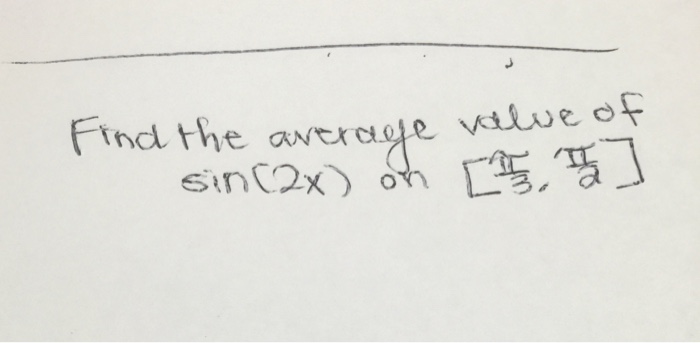 Find the average value of
sin(2x) on [π/3, π/2]